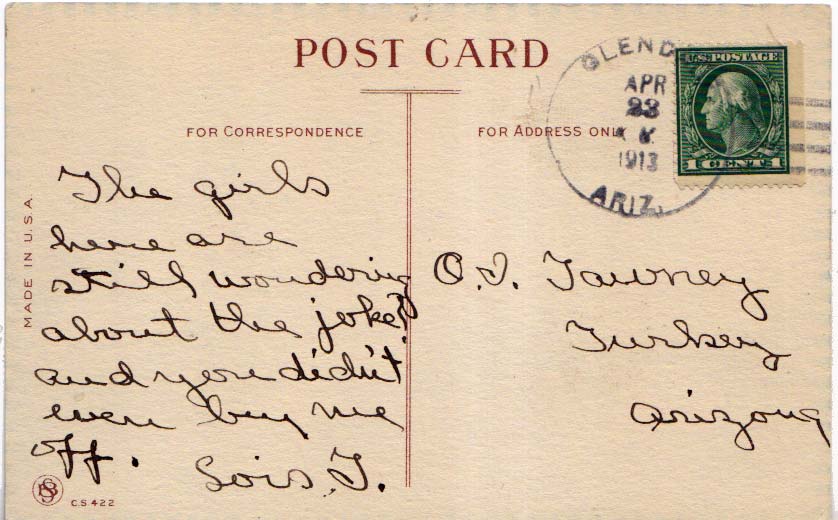 POST CARD
FOR CORRESPONDENCE
FOR ADDRESS ONLY
GLEND
APR
23
1913
ARIZ.
U.S. POSTAGE
1 CENT 1
MADE IN U.S.A.
The girls
here are
still wondering
about the joke?
and you didn't
even buy me
off.
Lois T.
O. T. Tawney
Turkey
Arizona
C.S. 422